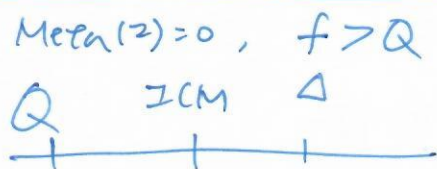 Meta(2)=0, f>Q
Q ICM Δ